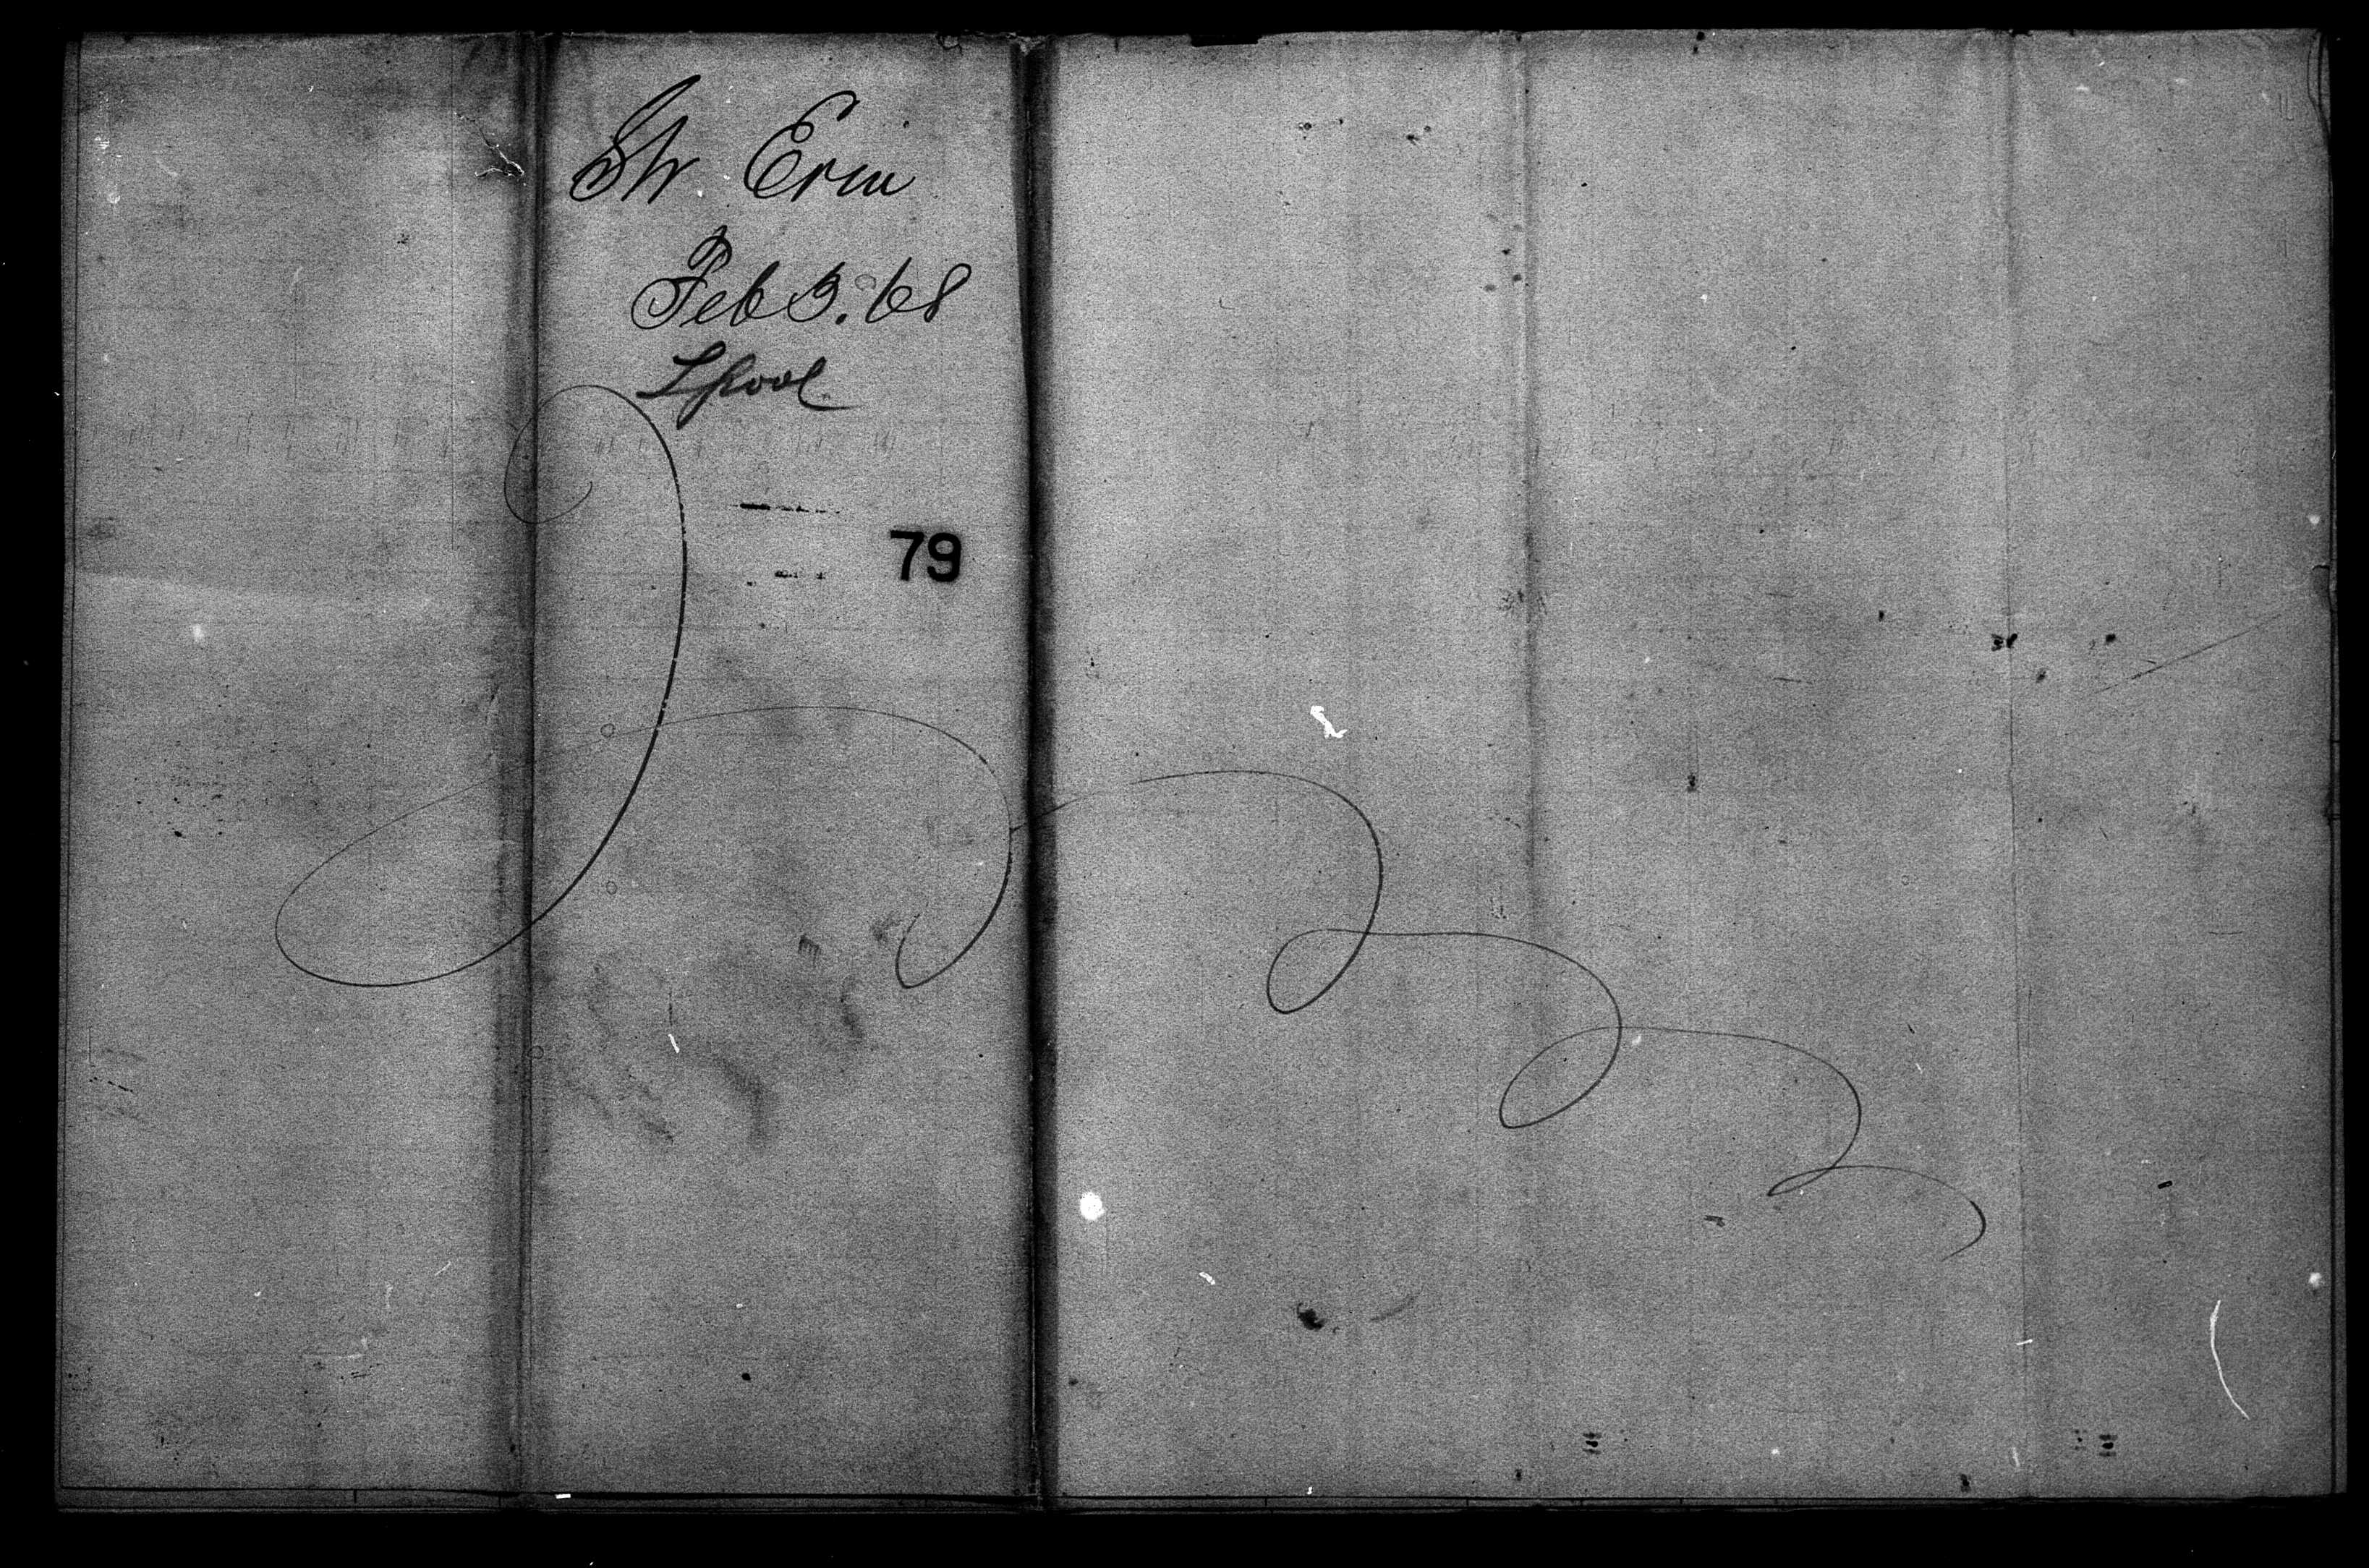 Str Erin
Feb 3. 68
Lpool
79